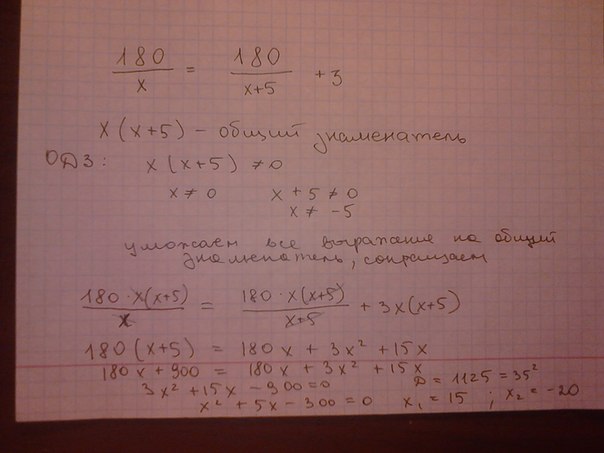 180/x = 180/(x+5) + 3
x(x+5) – общий знаменатель
ОДЗ: x(x+5) ≠ 0
x ≠ 0 x + 5 ≠ 0
x ≠ -5
умножаем все выражение на общий
знаменатель, сокращаем
180 · x(x+5)/x = 180 · x(x+5)/(x+5) + 3x(x+5)
180(x+5) = 180x + 3x² + 15x
180x + 900 = 180x + 3x² + 15x
3x² + 15x - 900 = 0
D = 1125 = 35²
x² + 5x - 300 = 0 x₁ = 15 ; x₂ = -20